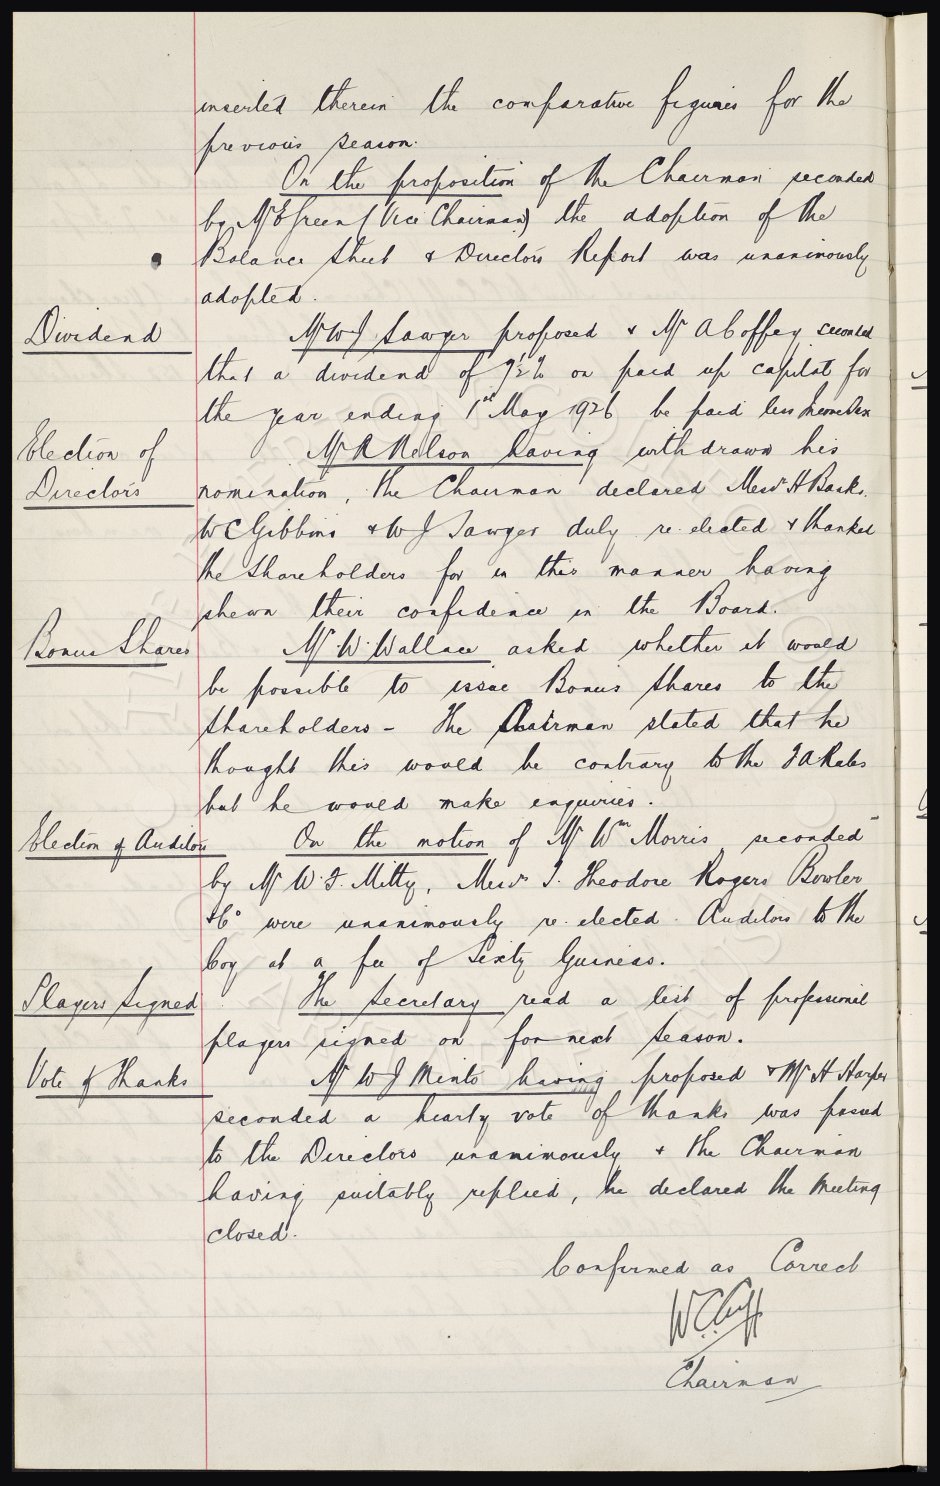 inserted therein the comparative figures for the
previous season.
On the proposition of the Chairman seconded
by Mr E Green (Vice Chairman) the adoption of the
Balance Sheet & Directors Report was unanimously
adopted.
Dividend
Mr W J Sawyer proposed & Mr A Coffey seconded
that a dividend of 7½% on paid up capital for
the year ending 1st May 1926 be paid less Income Tax
Election of
Directors
Mr R Nelson having withdrawn his
nomination, the Chairman declared Messrs H Banks.
W C Gibbins & W J Sawyer duly re-elected & thanked
the Shareholders for in this manner having
shewn their confidence in the Board.
Bonus Shares
Mr W. Wallace asked whether it would
be possible to issue Bonus Shares to the
Shareholders - The Chairman stated that he
thought this would be contrary to the F A Rules
but he would make enquiries.
Election of Auditors
On the motion of Mr Wm Morris, seconded
by Mr W. F. Mitty, Messrs T. Theodore Rogers Bowler
& Co were unanimously re-elected Auditors to the
Coy at a fee of Sixty Guineas.
Players Signed
The Secretary read a list of professional
players signed on for next Season.
Vote of Thanks
Mr W J Minto having proposed & Mr H Harper
seconded a hearty vote of thanks was passed
to the Directors unanimously & the Chairman
having suitably replied, he declared the meeting
closed.
Confirmed as Correct
W C Cuff
Chairman